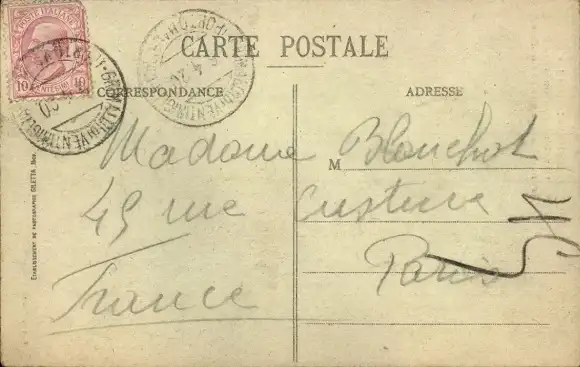 POSTE ITALIANE
10 CENTESIMI 10
CARTE POSTALE
CORRESPONDANCE
ADRESSE
M
Madame Blanchot
49 rue Custine
Paris
France
ÉTABLISSEMENT DE PHOTOGRAPHIE GILETTA, NICE